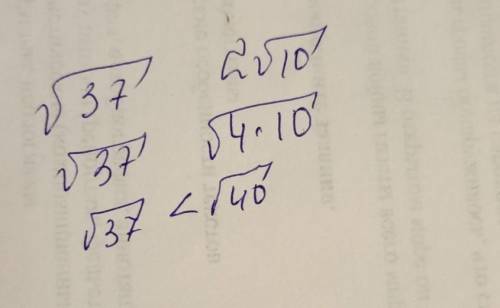 √37 2√10
√37 √4·10
√37 < √40